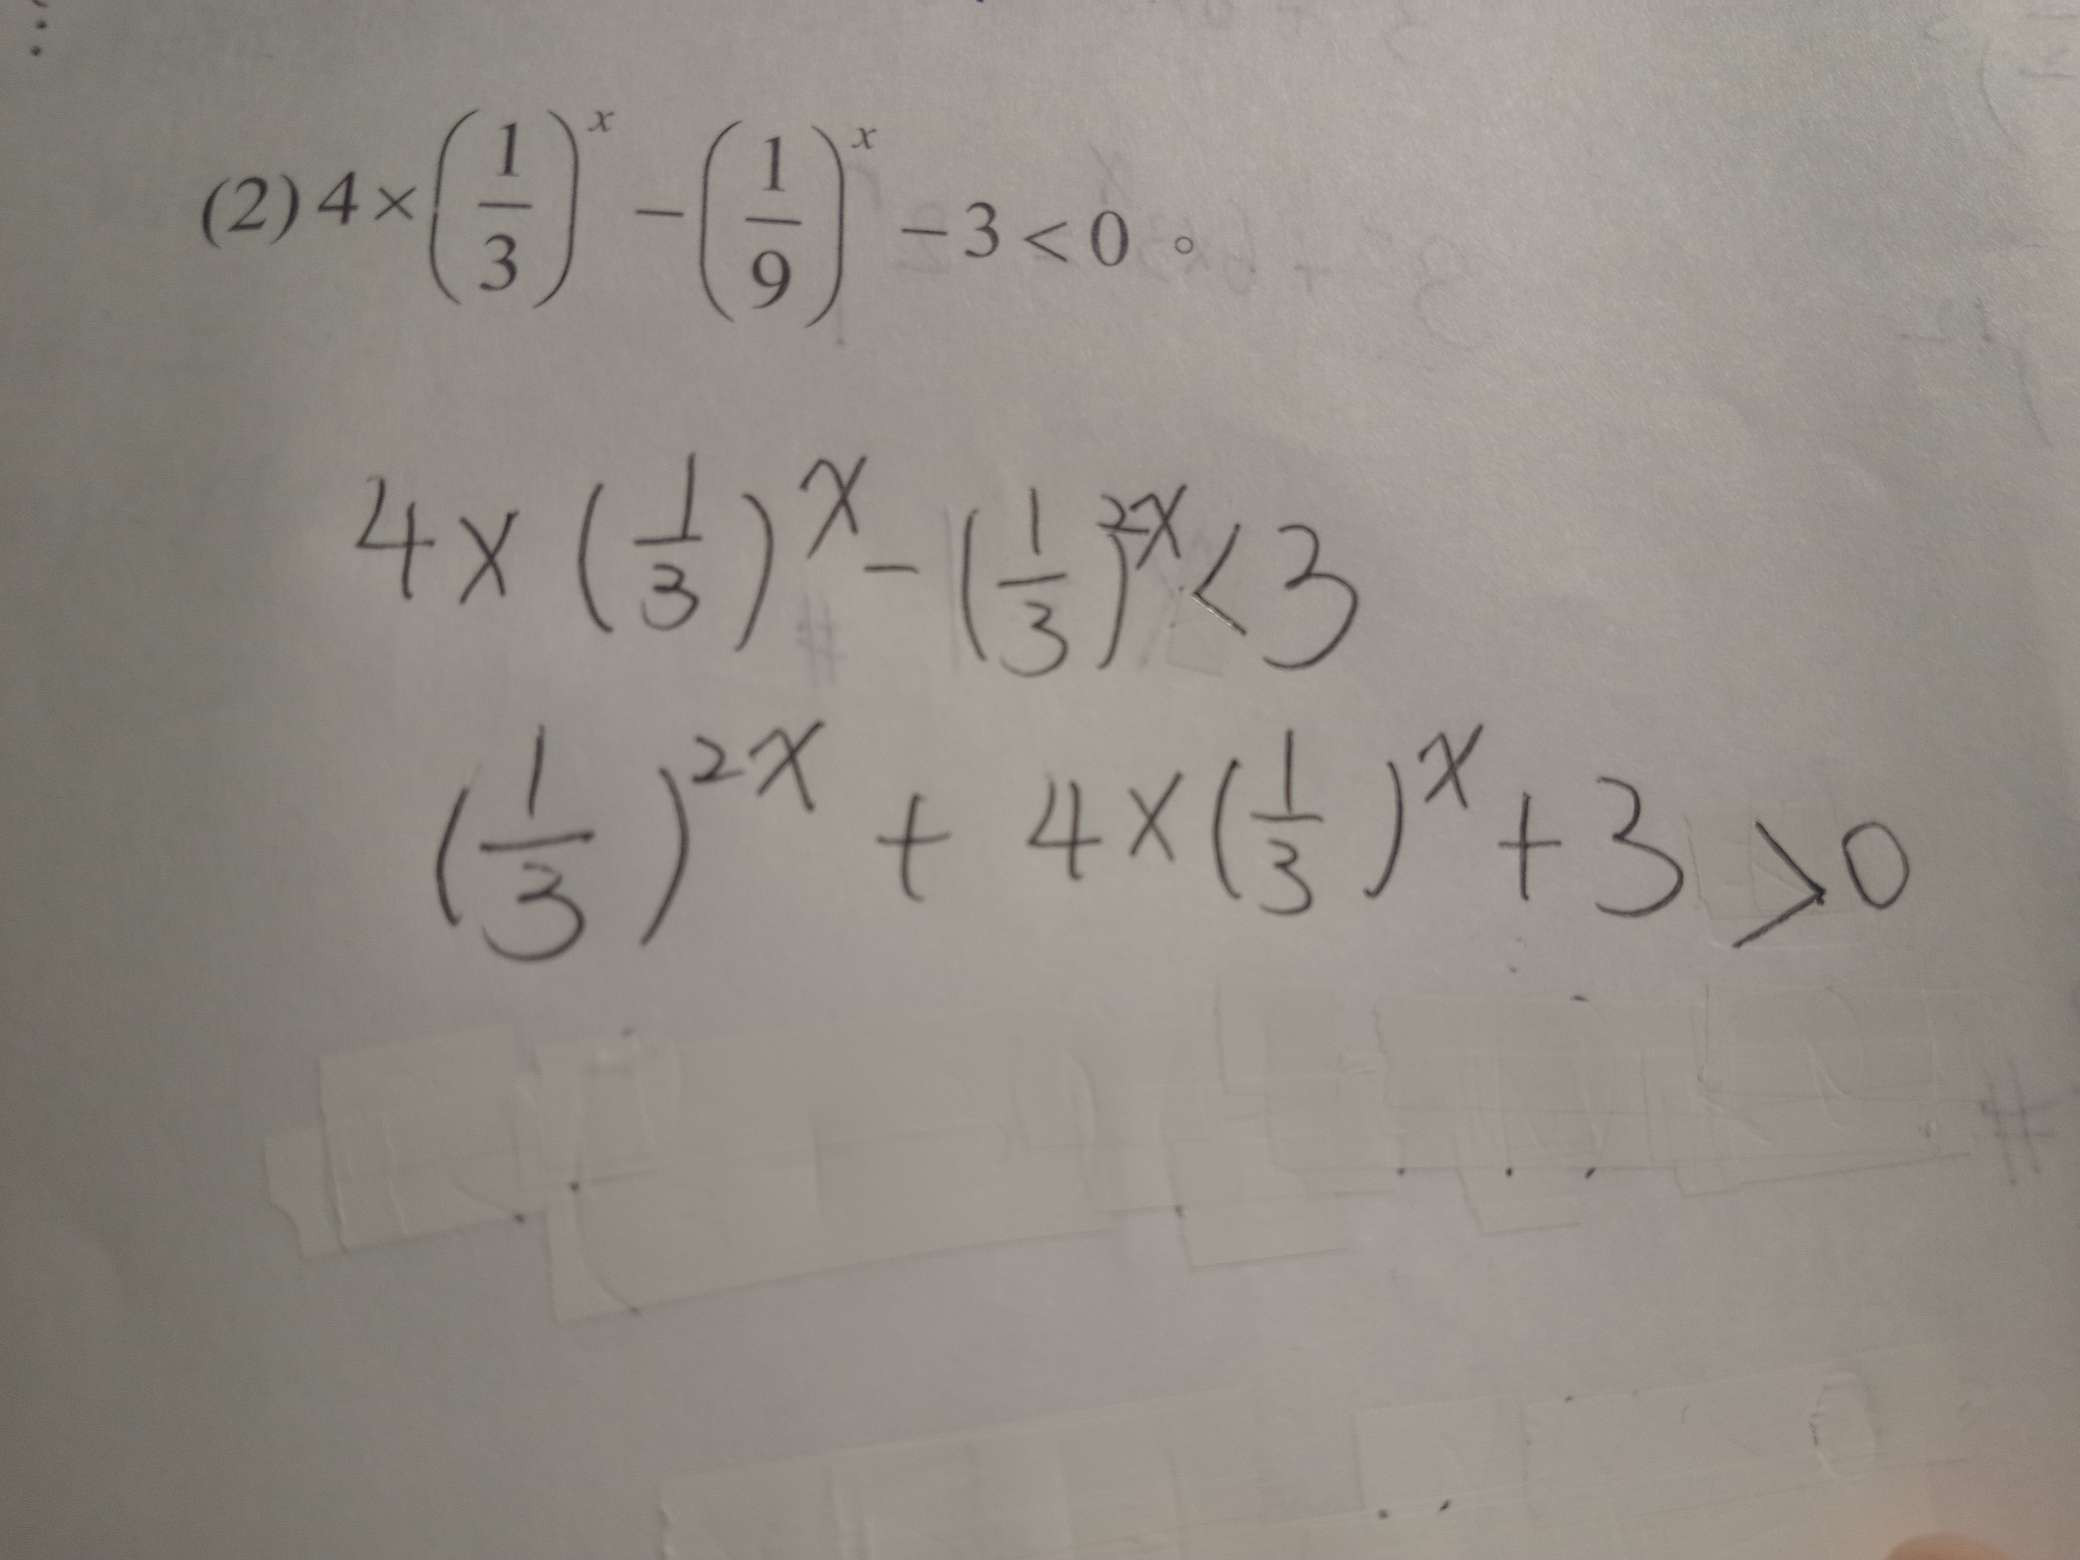 (2) 4×(1/3)^x −(1/9)^x −3<0。
4×(1/3)^x −(1/3)^2x <3
(1/3)^2x + 4×(1/3)^x +3 >0